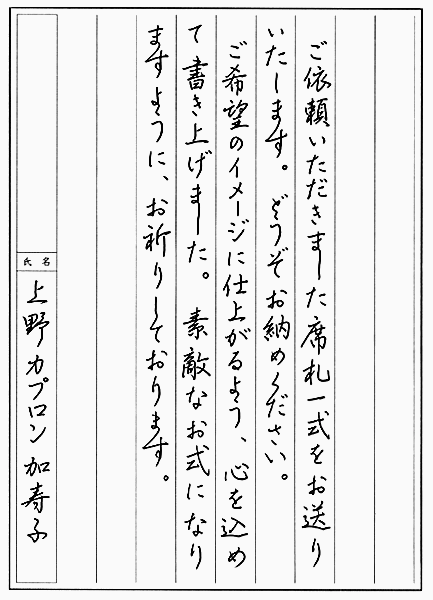 ご依頼いただきました席札一式をお送り
いたします。どうぞお納めください。
ご希望のイメージに仕上がるよう、心を込め
て書き上げました。素敵なお式になり
ますように、お祈りしております。
氏名
上野カプロン 加寿子